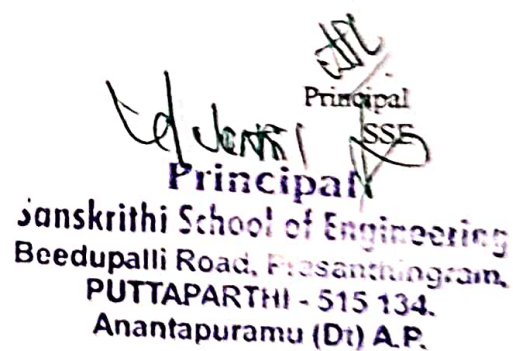 Principal
SSE
Principal
Sanskrithi School of Engineering
Beedupalli Road, Prasanthingram,
PUTTAPARTHI - 515 134.
Anantapuramu (Dt) A.P.